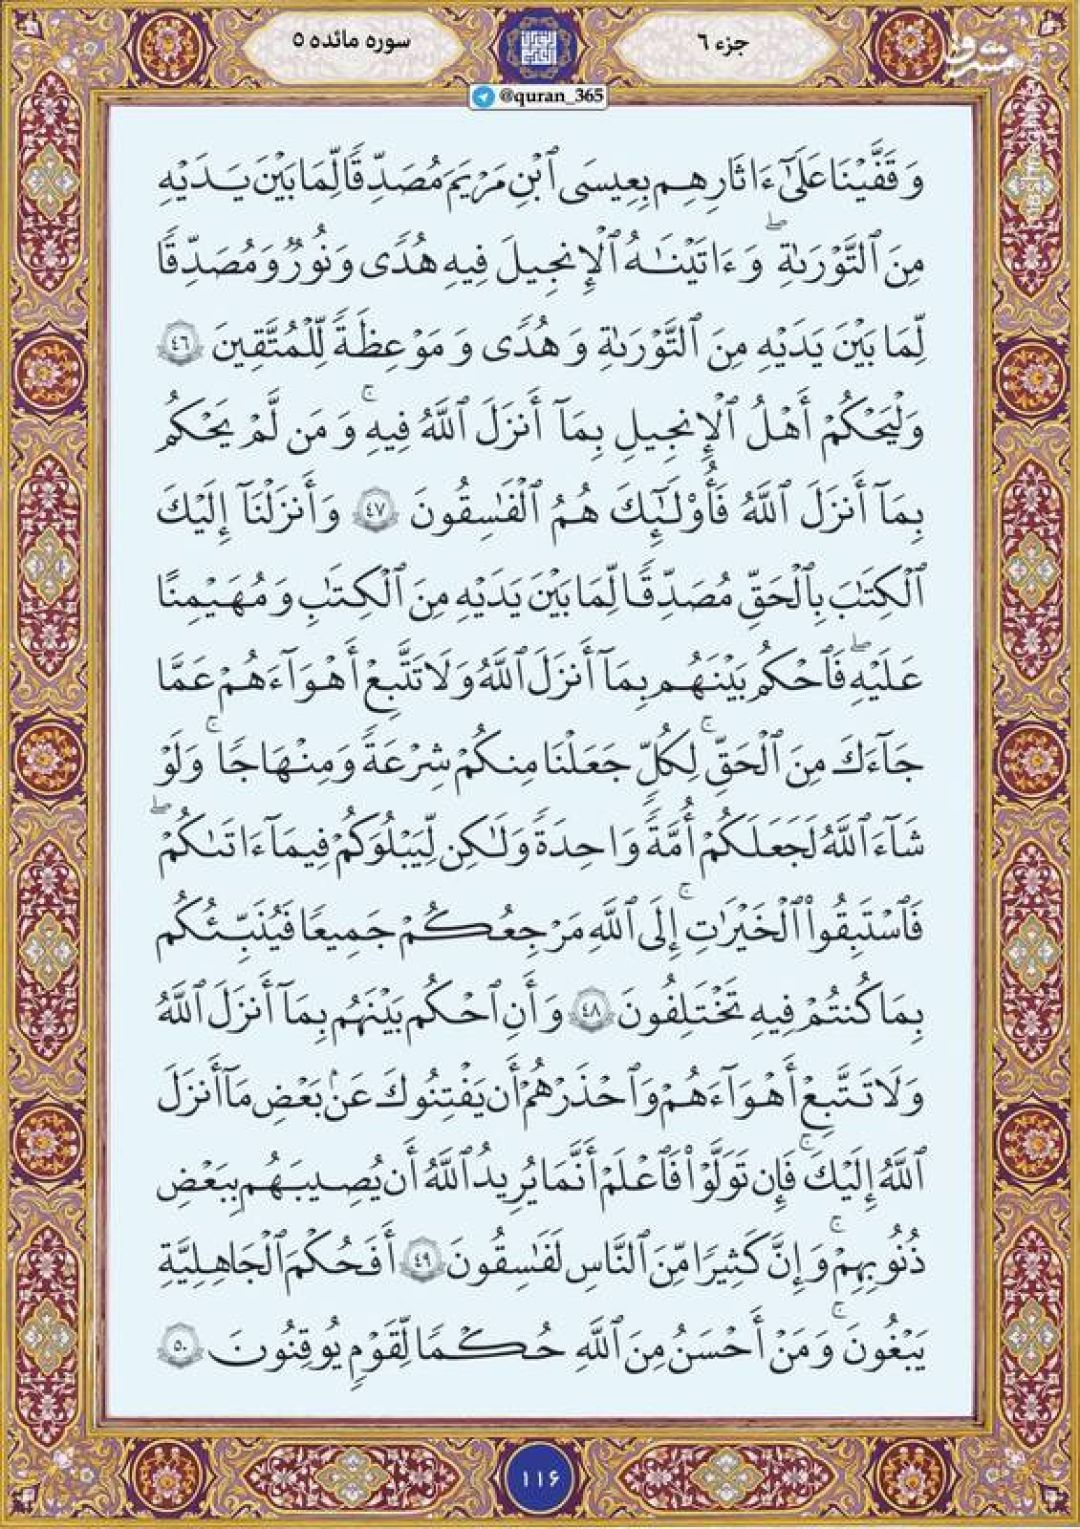 جزء ۶
سوره مائده ۵
@quran_365
وَقَفَّيْنَا عَلَىٰٓ ءَاثَارِهِم بِعِيسَى ٱبْنِ مَرْيَمَ مُصَدِّقًا لِّمَا بَيْنَ يَدَيْهِ
مِنَ ٱلتَّوْرَىٰةِ ۖ وَءَاتَيْنَـٰهُ ٱلْإِنجِيلَ فِيهِ هُدًى وَنُورٌ وَمُصَدِّقًا
لِّمَا بَيْنَ يَدَيْهِ مِنَ ٱلتَّوْرَىٰةِ وَهُدًى وَمَوْعِظَةً لِّلْمُتَّقِينَ ٤٦
وَلْيَحْكُمْ أَهْلُ ٱلْإِنجِيلِ بِمَآ أَنزَلَ ٱللَّهُ فِيهِ ۚ وَمَن لَّمْ يَحْكُم
بِمَآ أَنزَلَ ٱللَّهُ فَأُو۟لَـٰٓئِكَ هُمُ ٱلْفَـٰسِقُونَ ٤٧ وَأَنزَلْنَآ إِلَيْكَ
ٱلْكِتَـٰبَ بِٱلْحَقِّ مُصَدِّقًا لِّمَا بَيْنَ يَدَيْهِ مِنَ ٱلْكِتَـٰبِ وَمُهَيْمِنًا
عَلَيْهِ ۖ فَٱحْكُم بَيْنَهُم بِمَآ أَنزَلَ ٱللَّهُ وَلَا تَتَّبِعْ أَهْوَآءَهُمْ عَمَّا
جَآءَكَ مِنَ ٱلْحَقِّ ۚ لِكُلٍّ جَعَلْنَا مِنكُمْ شِرْعَةً وَمِنْهَاجًا ۚ وَلَوْ
شَآءَ ٱللَّهُ لَجَعَلَكُمْ أُمَّةً وَاحِدَةً وَلَـٰكِن لِّيَبْلُوَكُمْ فِيمَآ ءَاتَىٰكُمْ ۖ
فَٱسْتَبِقُوا۟ ٱلْخَيْرَٰتِ ۚ إِلَى ٱللَّهِ مَرْجِعُكُمْ جَمِيعًا فَيُنَبِّئُكُم
بِمَا كُنتُمْ فِيهِ تَخْتَلِفُونَ ٤٨ وَأَنِ ٱحْكُم بَيْنَهُم بِمَآ أَنزَلَ ٱللَّهُ
وَلَا تَتَّبِعْ أَهْوَآءَهُمْ وَٱحْذَرْهُمْ أَن يَفْتِنُوكَ عَنۢ بَعْضِ مَآ أَنزَلَ
ٱللَّهُ إِلَيْكَ ۖ فَإِن تَوَلَّوْا۟ فَٱعْلَمْ أَنَّمَا يُرِيدُ ٱللَّهُ أَن يُصِيبَهُم بِبَعْضِ
ذُنُوبِهِمْ ۗ وَإِنَّ كَثِيرًا مِّنَ ٱلنَّاسِ لَفَـٰسِقُونَ ٤٩ أَفَحُكْمَ ٱلْجَـٰهِلِيَّةِ
يَبْغُونَ ۚ وَمَنْ أَحْسَنُ مِنَ ٱللَّهِ حُكْمًا لِّقَوْمٍ يُوقِنُونَ ٥٠
۱۱۶